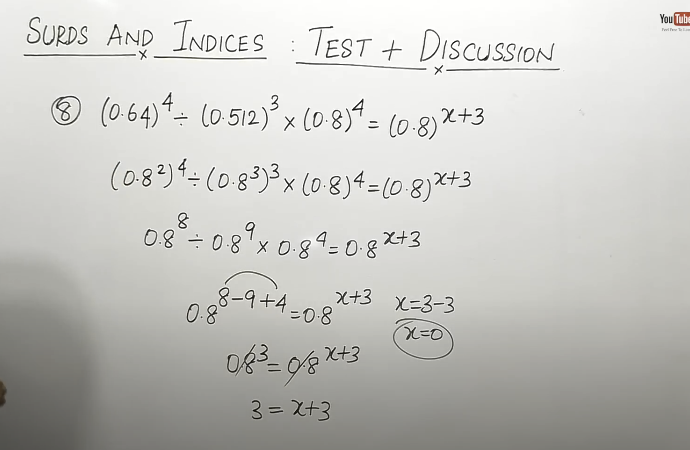 SURDS AND INDICES : TEST + DISCUSSION
YouTube
⑧ (0.64)⁴ ÷ (0.512)³ × (0.8)⁴ = (0.8)ˣ⁺³
(0.8²)⁴ ÷ (0.8³)³ × (0.8)⁴ = (0.8)ˣ⁺³
0.8⁸ ÷ 0.8⁹ × 0.8⁴ = 0.8ˣ⁺³
0.8⁸⁻⁹⁺⁴ = 0.8ˣ⁺³
x=3-3
x=0
0.8³ = 0.8ˣ⁺³
3 = x+3